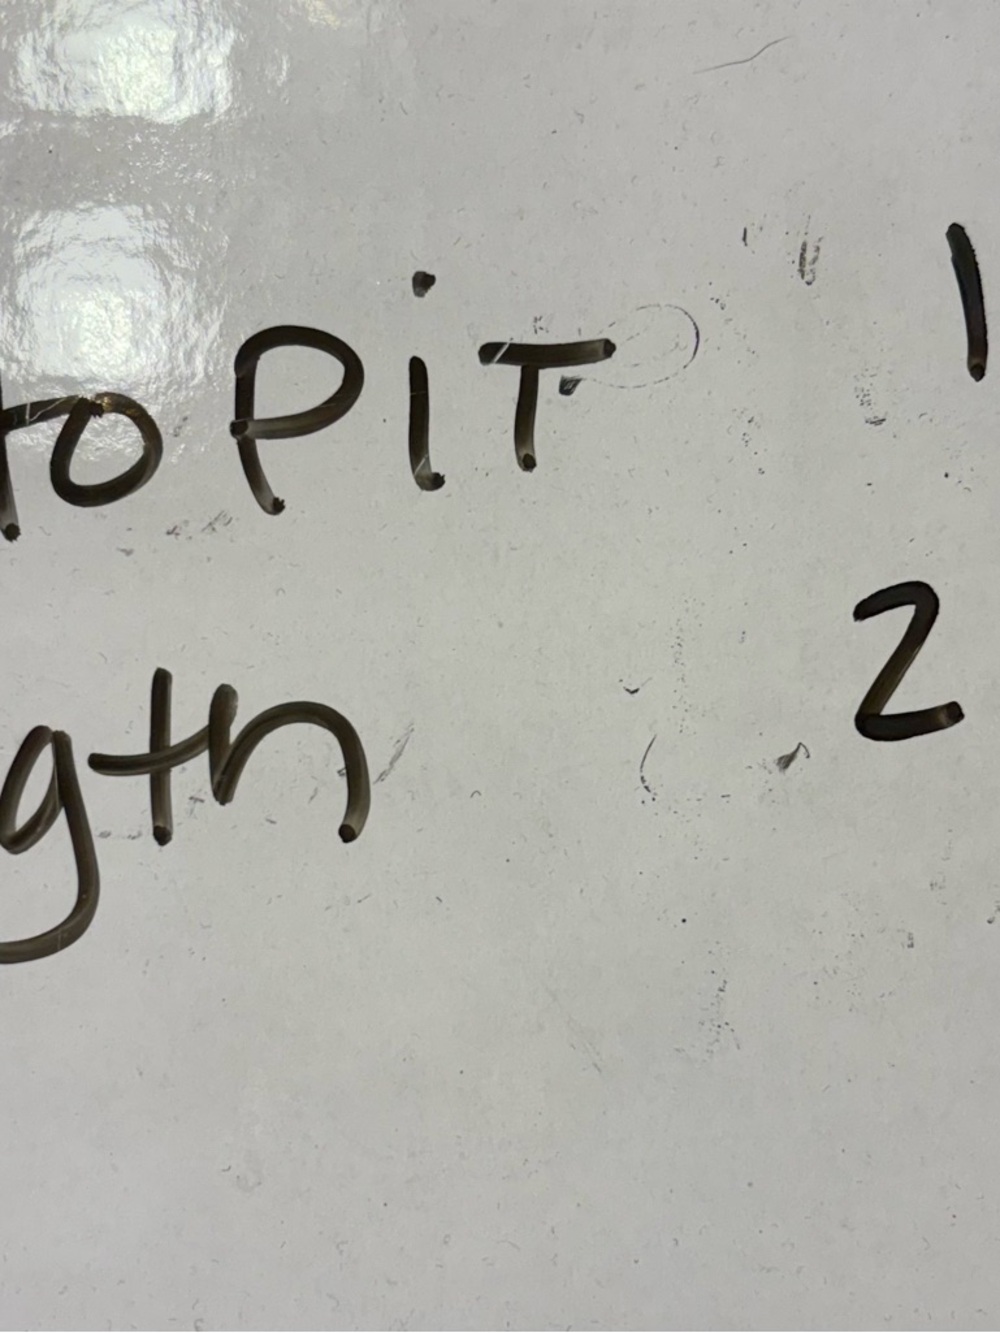 to PiT 1
gth 2